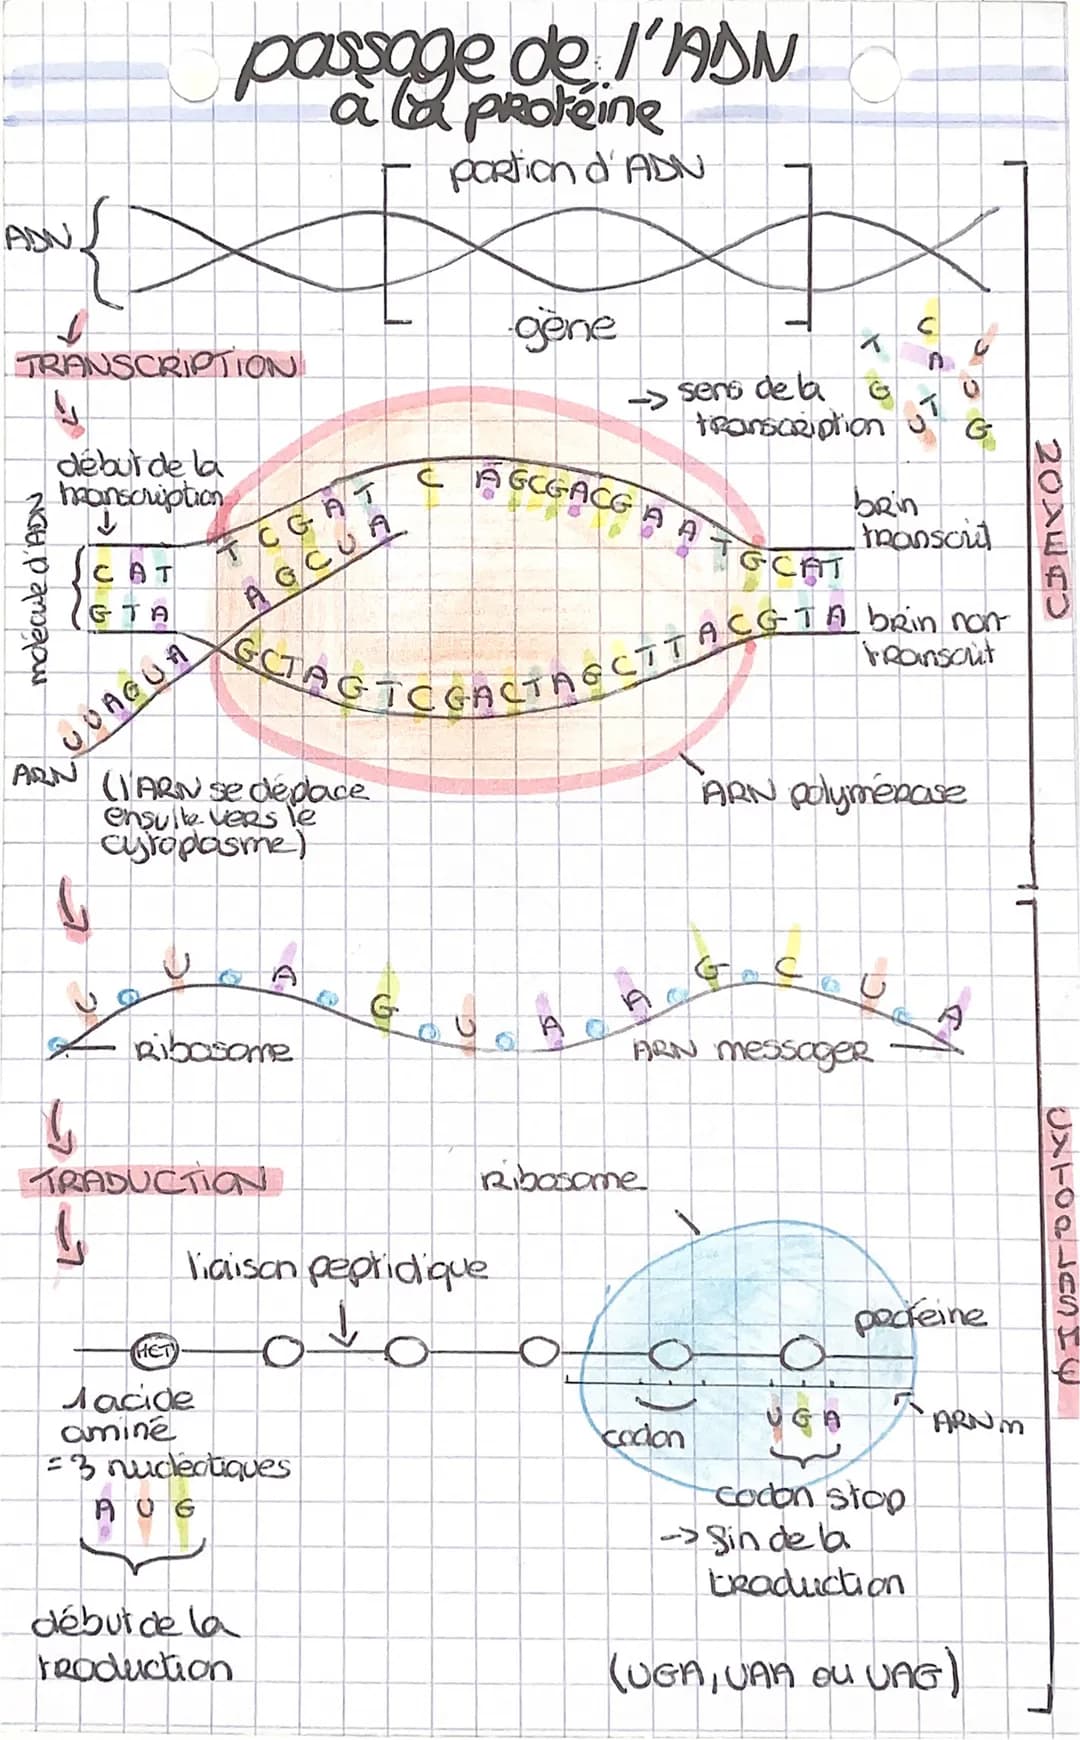 passage de l'ADN
à la protéine
portion d'ADN
ADN
gène
TRANSCRIPTION
→ sens de la
transcription
T C A U G T U U G
début de la
transcription
molécule d'ADN
C A T
G T A
T C G A T
C AGCGACGAATGCAT
AGCUA
GCTAGTCGACTAGCTTACGTA
brin
transcrit
brin non
transcrit
NOYEAU
UUAGUA
ARN
(l'ARN se déplace
ensuite vers le
cytoplasme)
ARN polymérase
U U A G U A A G C U A
Ribosome
ARN messager
TRADUCTION
Ribosome
liaison peptidique
MET
protéine
1 acide
aminé
= 3 nucléotiques
A U G
début de la
traduction
codon
U G A
ARNm
codon stop
→ fin de la
traduction
(UGA, UAA ou UAG)
CYTOPLASME